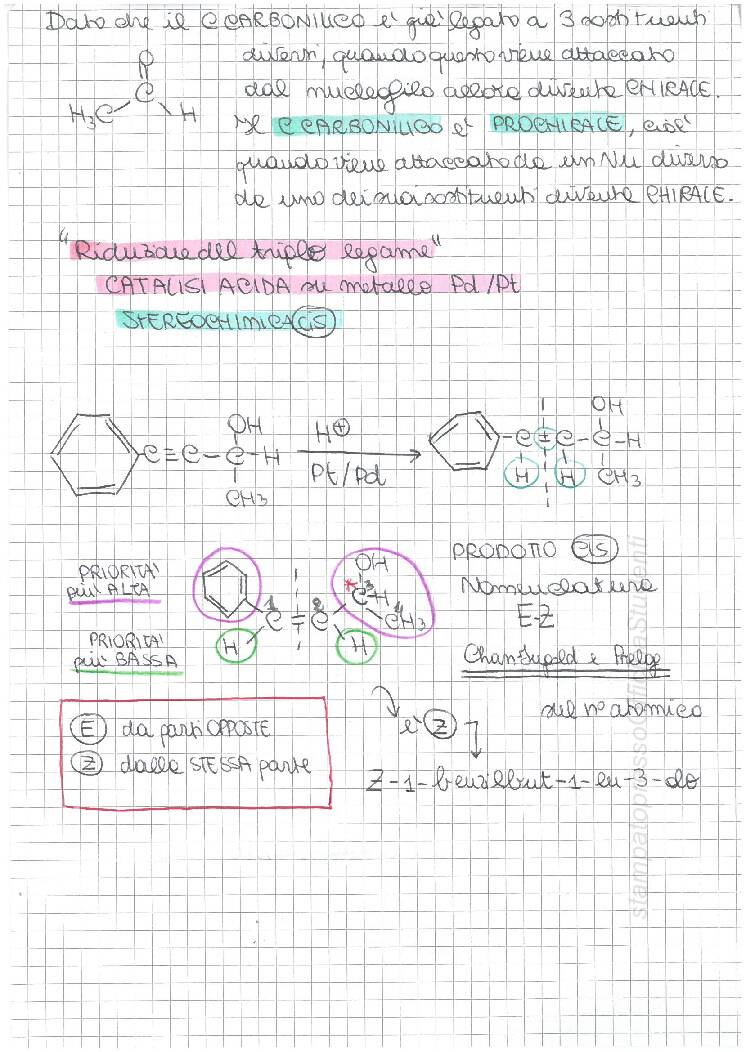 Dato che il C CARBONILICO e' già legato a 3 sostituenti
diversi, quando questo viene attaccato
dal nucleofilo allora diventa CHIRALE.
Il C CARBONILICO e' PROCHIRALE, cioè
quando viene attaccato da un Nu diverso
da uno dei suoi sostituenti diventa CHIRALE.
O
C
H₃C H
"Riduzione del triplo legame"
CATALISI ACIDA su metallo Pd/Pt
STEREOCHIMICA cis
OH
C≡C-C-H
CH3
H⊕
Pt/Pd
OH
-C=C-C-H
H H CH3
PRIORITA'
più ALTA
PRIORITA'
più BASSA
OH
* 3
C-H
1 2 4
C = C CH3
H H
PRODOTTO cis
Nomenclatura
E-Z
Chan Ingold e Prelog
sul n° atomico
E da parti OPPOSTE
Z dalla STESSA parte
e' Z
Z-1-benzilbut-1-en-3-olo
stampatopressoOfficinaStudenti